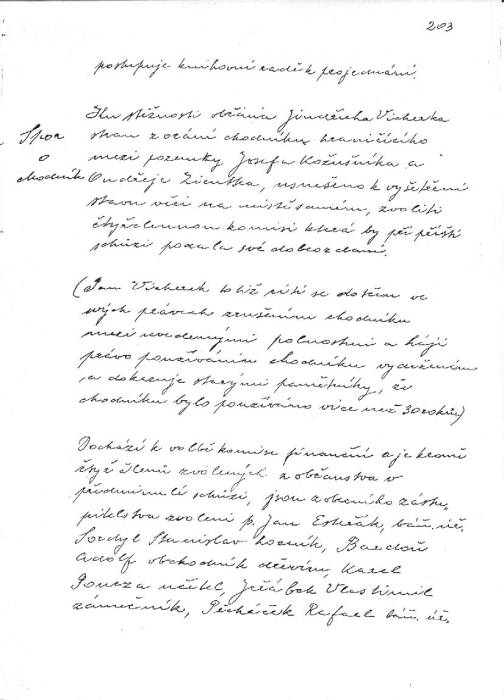 203
postupuje knihovní radě k projednání.
Ku stížnosti občana Jindřicha Vicherka
Spor
o
chodník
stran zorání chodníku hraničícího
mezi pozemky Josefa Kožušníka a
Ondřeje Zientka, usneseno k vyšetření
stavu věci na místě samém, zvoliti
čtyřčlennou komisi která by při příští
schůzi podala své dobrozdání.
(Pan Vicherek totiž cítí se dotčen ve
svých právech zrušením chodníku
mezi uvedenými polnostmi a hájí
právo používáním chodníku vydržením
a dokazuje starými pamětníky, že
chodníku bylo používáno více než 30 roků)
Dochází k volbě komise finanční a je kromě
čtyř členů zvolených z občanstva v
předminulé schůzi, jsou z obecního zastu-
pitelstva zvoleni p. Jan báň. úř.
Sordyl Stanislav horník,
Adolf obchodník dřívím, Karel
učitel, Jeřábek Vlastimil
zámečník, Pěcháček Rafael báň. úř.